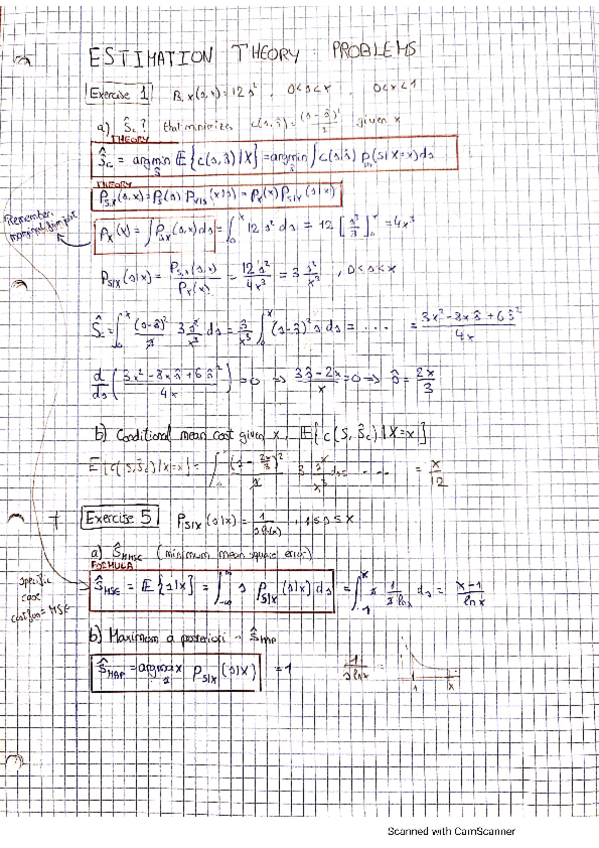 ESTIMATION THEORY: PROBLEMS
Exercise 1 P_{S,X}(s,x) = 12s², 0<s<x, 0<x<1
a) Ŝ_c? that minimizes c(s,ŝ) = (s-ŝ)²/s given x
THEORY
Ŝ_c = argmin_ŝ E{c(s,ŝ)|X} = argmin_ŝ ∫ c(s,ŝ) p_{S|X}(s|X=x) ds
THEORY
P_{S,X}(s,x) = P_S(s) P_{X|S}(x|s) = P_X(x) P_{S|X}(s|x)
Remember marginal from joint
P_X(x) = ∫ P_{S,X}(s,x) ds = ∫_0^x 12s² ds = 12 [s³/3]_0^x = 4x³
P_{S|X}(s|x) = P_{S,X}(s,x)/P_X(x) = 12s²/4x³ = 3 s²/x³, 0<s<x
Ŝ_c = ∫_0^x (s-ŝ)²/s 3 s²/x³ ds = 3/x³ ∫_0^x (s-ŝ)² s ds = ... = (3x²-8xŝ+6ŝ²)/4x
d/ds ((3x²-8xŝ+6ŝ²)/4x) = 0 ⇒ (3ŝ-2x)/x = 0 ⇒ ŝ = 2x/3
b) Conditional mean cost given x, E{c(S,Ŝ_c)|X=x}
E{c(S,Ŝ_c)|X=x} = ∫_0^x (s - 2x/3)²/s 3 s²/x³ ds = ... = x/12
Exercise 5 P_{S|X}(s|x) = 1/(s ln(x)), 1≤s≤x
a) Ŝ_MMSE (minimum mean square error)
FORMULA
specific case cost fun = MSE
Ŝ_MSE = E{s|x} = ∫_{-∞}^{∞} s P_{S|X}(s|x) ds = ∫_1^x s 1/(s ln x) ds = (x-1)/ln x
b) Maximum a posteriori - Ŝ_MAP
Ŝ_MAP = argmax_s P_{S|X}(s|x) = 1 1/(s ln x) = 1 x
Scanned with CamScanner